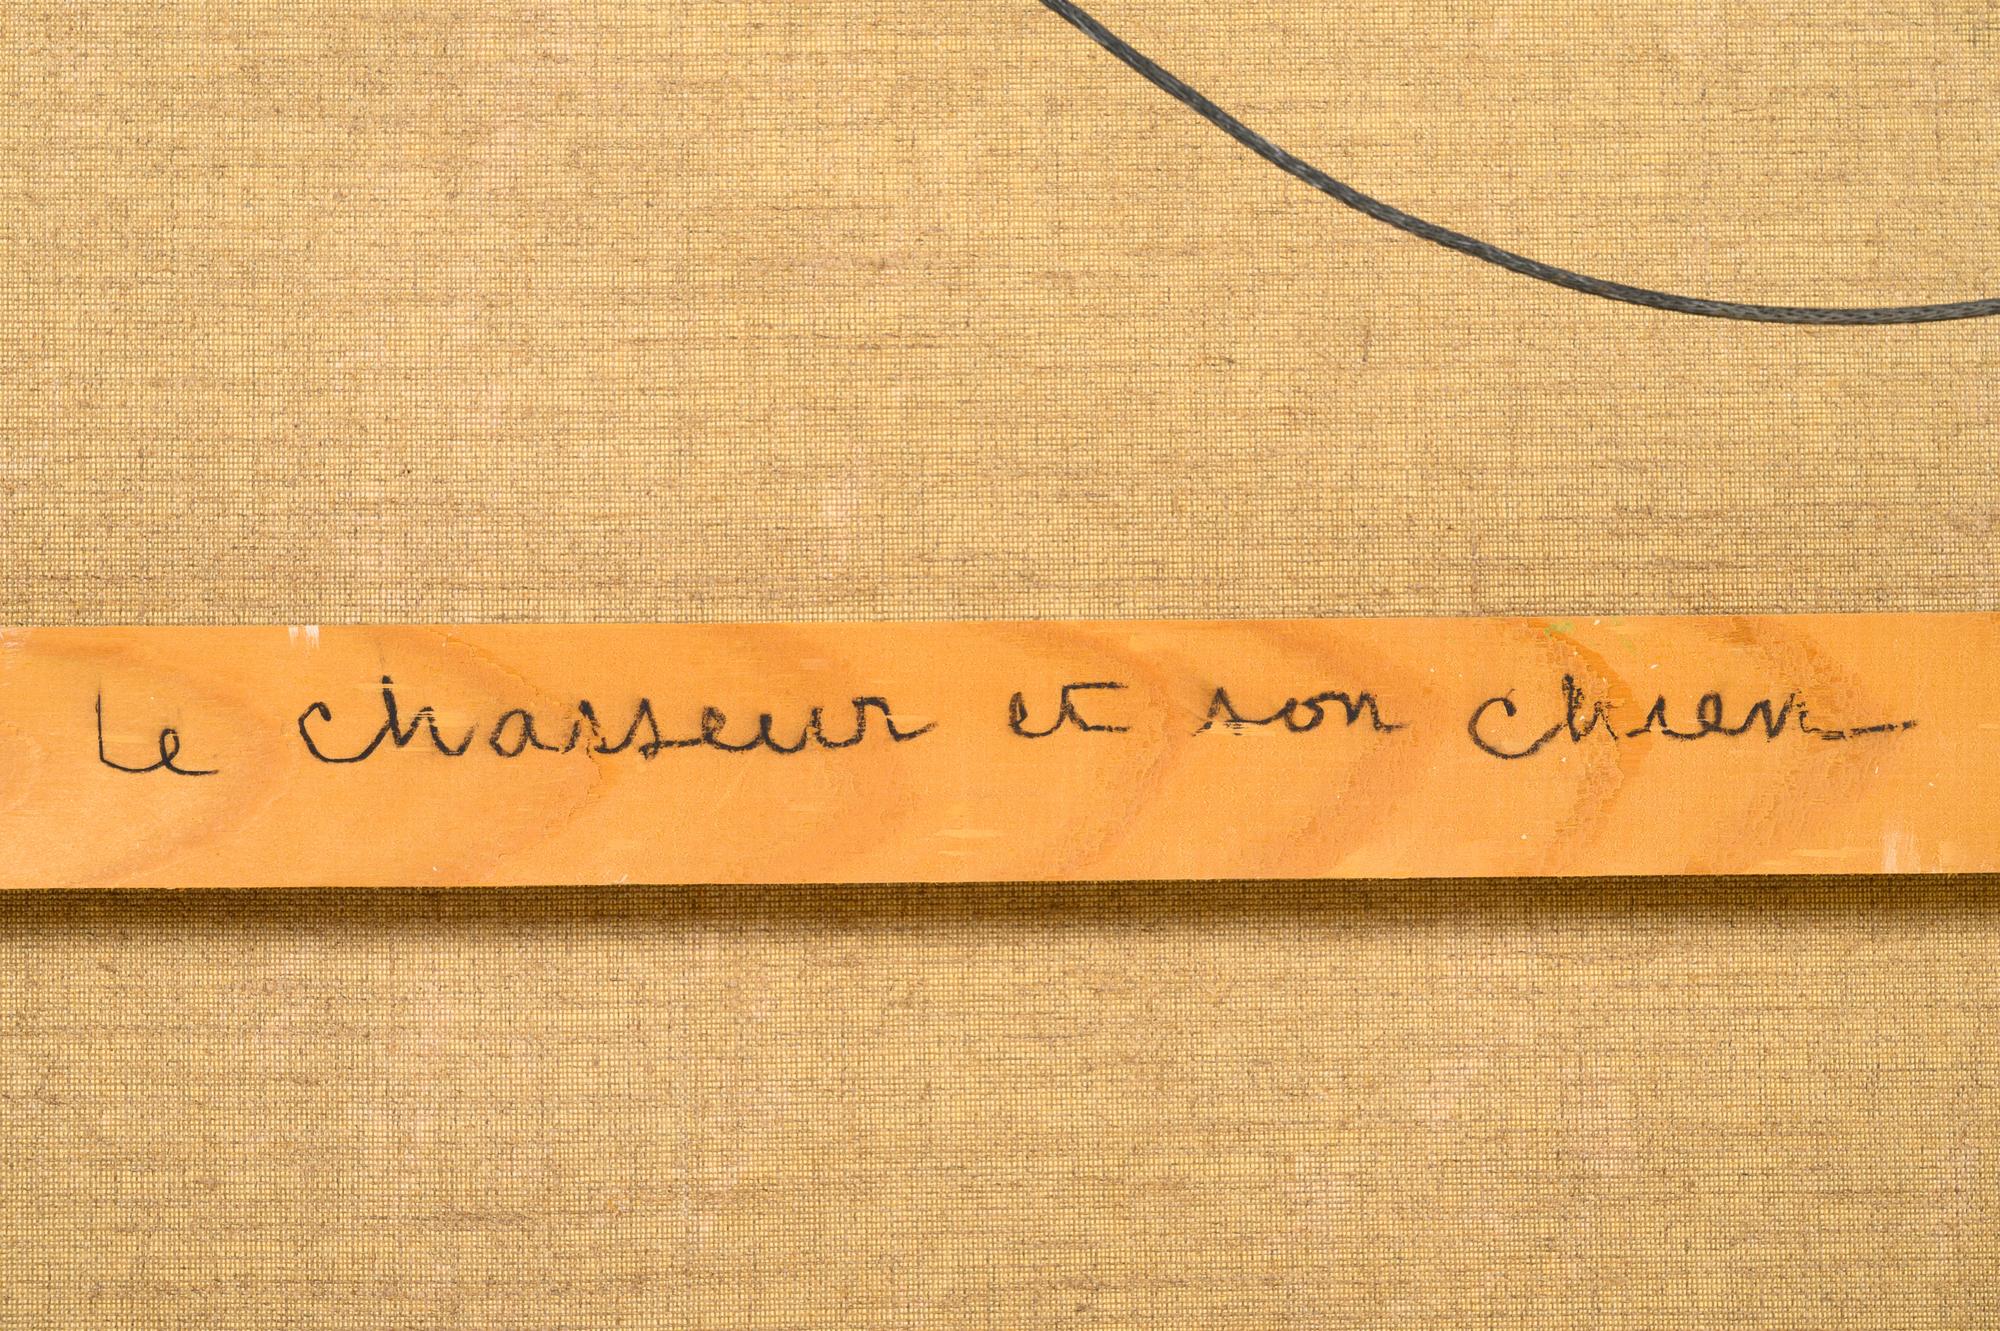 Le chasseur et son chien